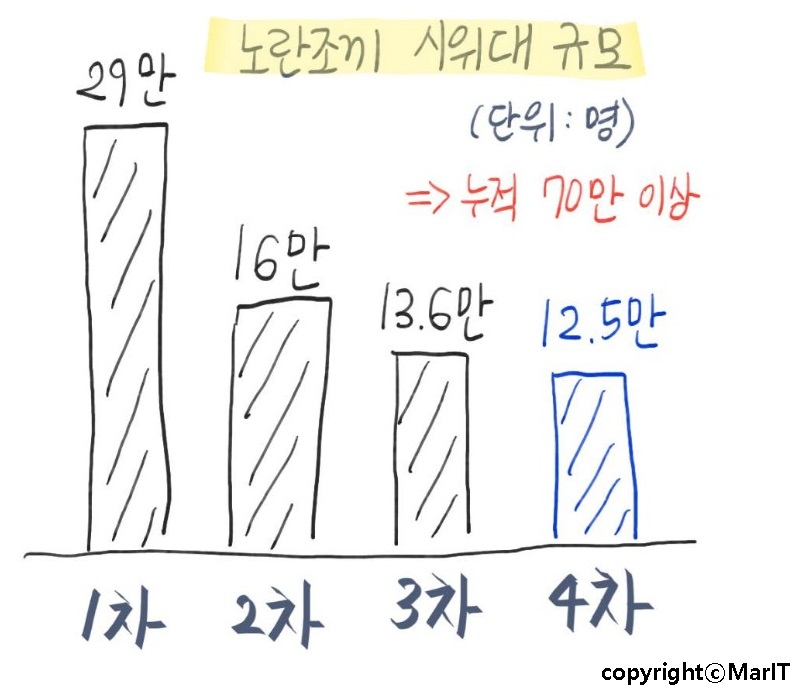 노란조끼 시위대 규모
(단위:명)
=> 누적 70만 이상
29만
16만
13.6만
12.5만
1차 2차 3차 4차
copyrightⓒMarIT